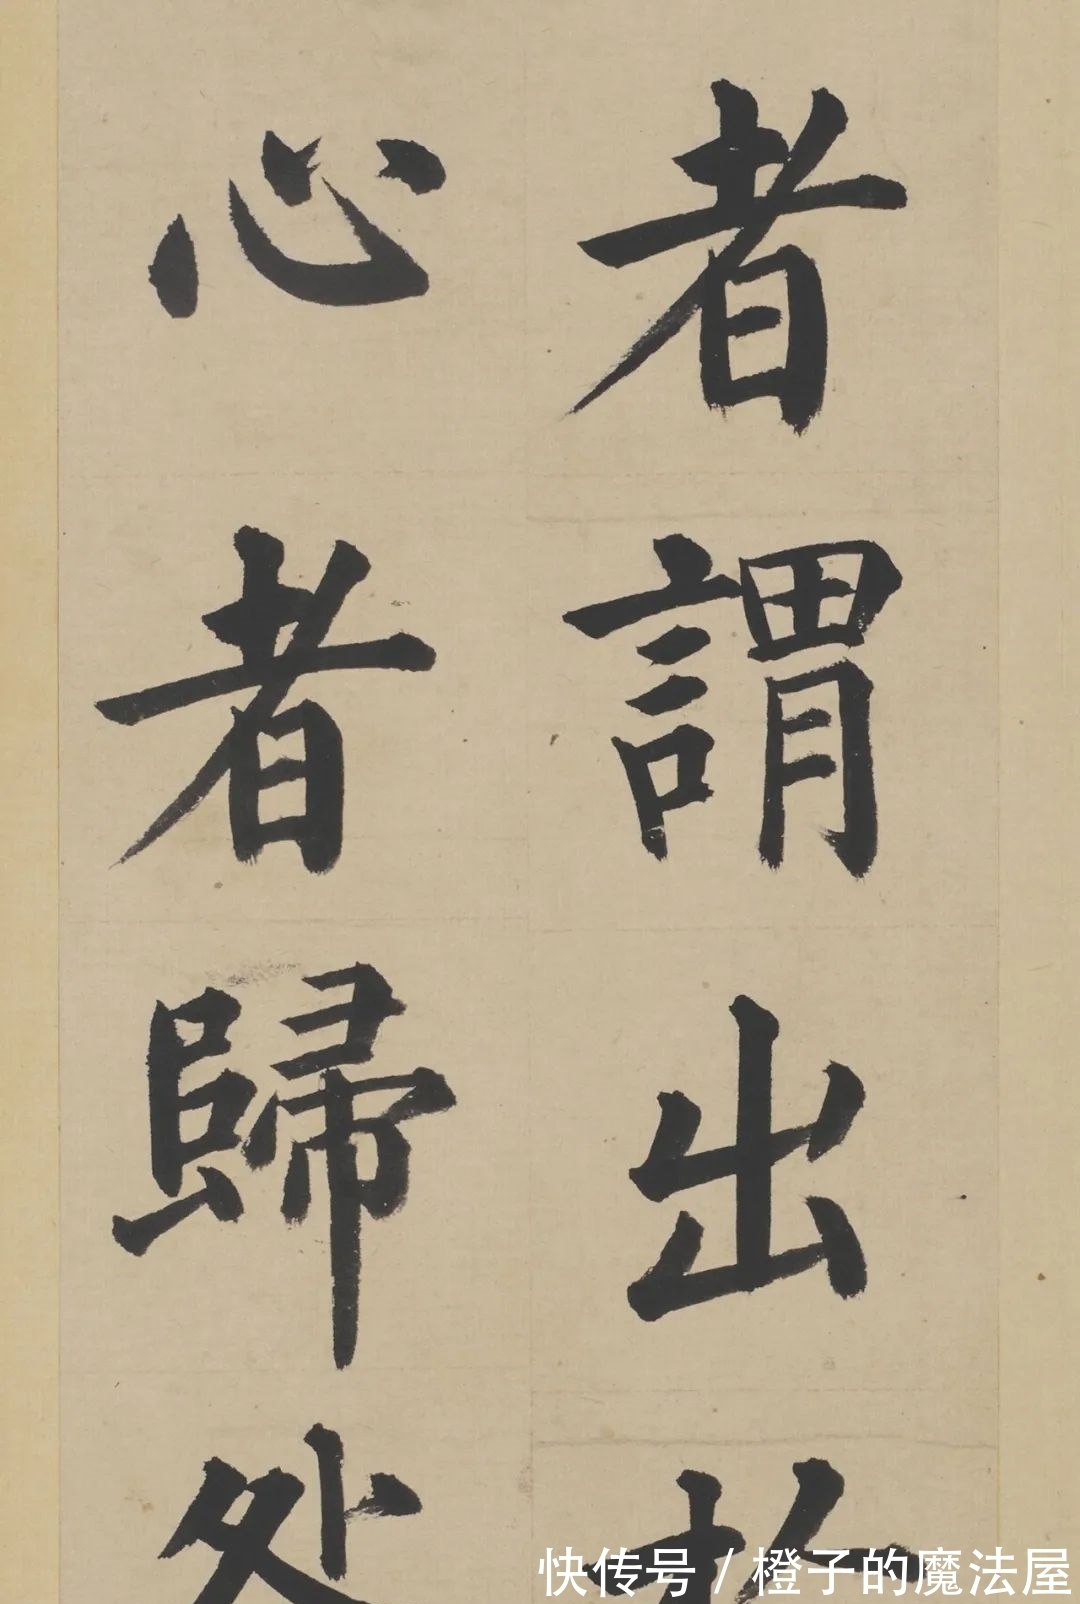 者謂出於
心者歸处
快传号 / 橙子的魔法屋